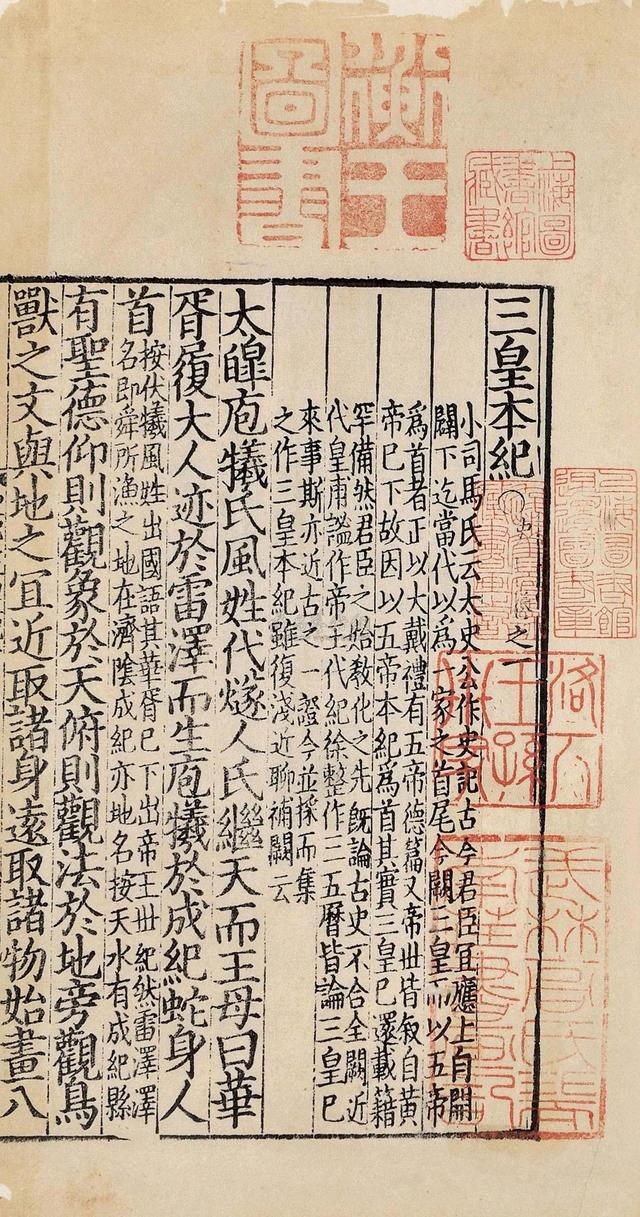 衡王圖書
上海圖書館藏書
三皇本紀
小司馬氏云太史公作史記古今君臣宜應上自開
闢下迄當代以爲一家之首尾今闕三皇而以五帝
爲首者正以大戴禮有五帝德篇又帝丗皆叙自黃
帝已下故因以五帝本紀爲首其實三皇已還載籍
罕備然君臣之始教化之先旣論古史不合全闕近
代皇甫謐作帝王代紀徐整作三五曆皆論三皇已
來事斯亦近古之一證今並採而集
之作三皇本紀雖復淺近聊補闕云
太皥庖犧氏風姓代燧人氏繼天而王母曰華
胥履大人迹於雷澤而生庖犧於成紀蛇身人
首
按伏犧風姓出國語其華胥已下出帝王丗紀然雷澤澤
名即舜所漁之地在濟陰成紀亦地名按天水有成紀縣
有聖德仰則觀象於天俯則觀法於地旁觀鳥
獸之文與地之宜近取諸身遠取諸物始畫八